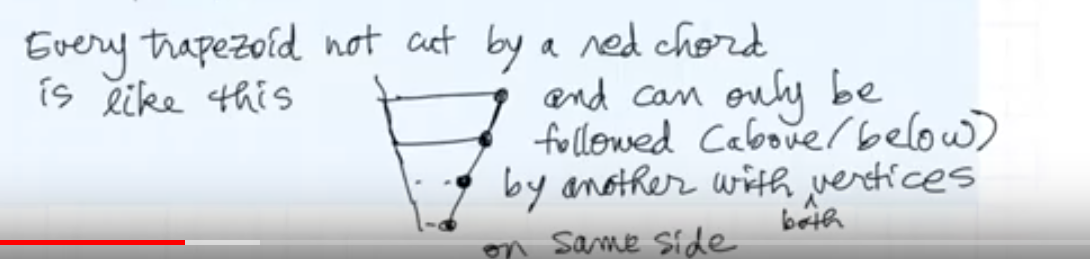 Every trapezoid not cut by a red chord
is like this and can only be
followed (above/below)
by another with both vertices
on same side